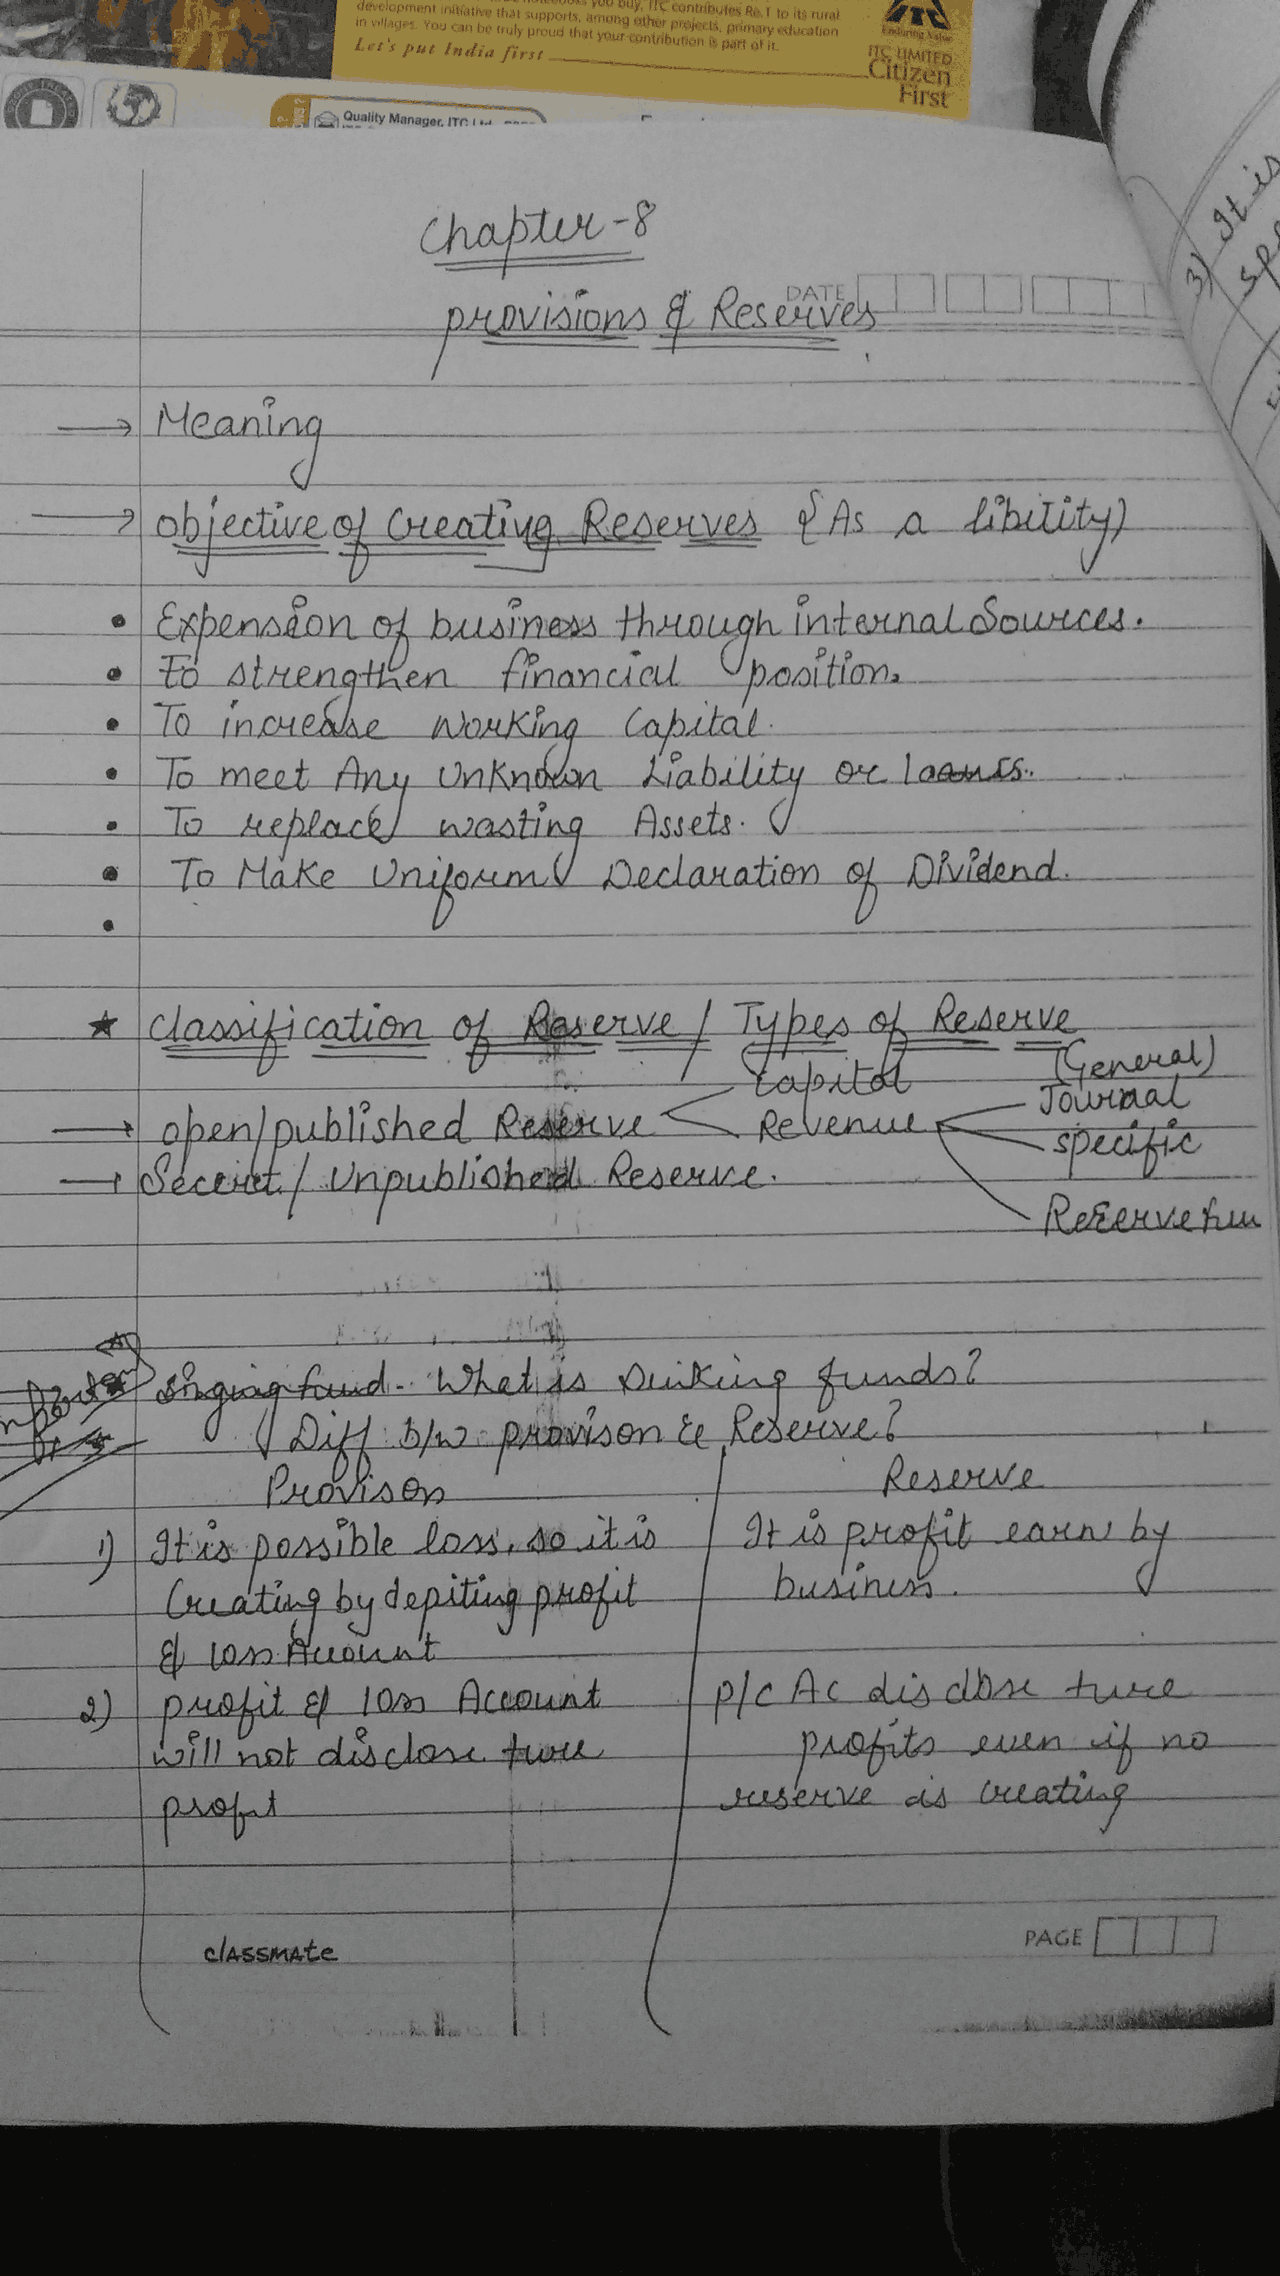 notebooks you buy, ITC contributes Re. 1 to its rural
development initiative that supports, among other projects, primary education
in villages. You can be truly proud that your contribution is part of it.
Let's put India first
ITC
Enduring Value
ITC LIMITED
Citizen
First
Quality Manager, ITC Ltd
Chapter-8
DATE
provisions & Reserves
→ Meaning
→ objective of Creating Reserves {As a libility)
• Expension of business through internal Sources.
• To strengthen financial position.
• To increase working Capital.
• To meet Any Unknown Liability or
• To replace wasting Assets.
• To Make Uniform Declaration of Dividend.
•
★ Classification of Reserve / Types of Reserve
(General)
Capital
Journal
→ open/published Reserve Revenue
specific
→ Secret / Unpublished Reserve.
Reserve fun
Singing fund- What is Sinking funds?
Diff b/w provison & Reserve?
Provison Reserve
1) It is possible loss, so it is It is profit earn by
Creating by depiting profit business.
& loss Account
2) profit & loss Account P/C Ac disclose ture
will not disclose ture profits even if no
profit reserve is creating
classmate
PAGE
3) It is